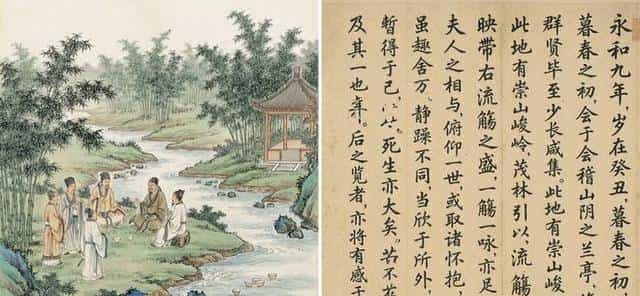 永和九年，岁在癸丑，暮春之初
暮春之初，会于会稽山阴之兰亭
群贤毕至少长咸集。此地有崇山峻
此地有崇山峻岭，茂林引以，流觴
映带右流觴之盛，一觴一咏，亦足
夫人之相与，俯仰一世，或取诸怀抱
虽趣舍万、静躁不同，当欣于所外，
暫得于己 死生亦大矣。
及其一也 。后之览者，亦将有感于